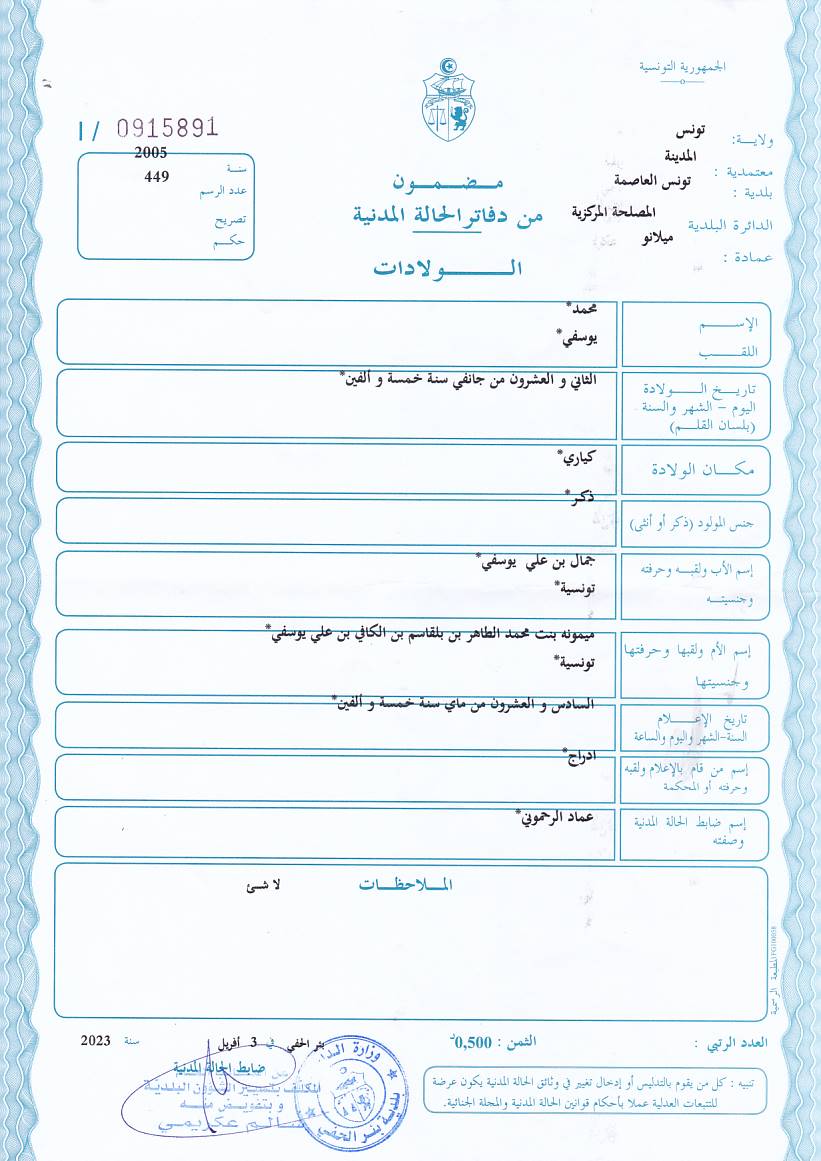 الجمهورية التونسية
I / 0915891
ولاية: تونس
معتمدية : المدينة
بلدية : تونس العاصمة
الدائرة البلدية المصلحة المركزية
عمادة : ميلانو
سنة 2005
عدد الرسم 449
تصريح
حكم
مضمون
من دفاتر الحالة المدنية
الولادات
الإسم محمد*
اللقب يوسفي*
تاريخ الولادة
اليوم – الشهر والسنة
(بلسان القلم)
الثاني و العشرون من جانفي سنة خمسة و ألفين*
مكان الولادة كياري*
جنس المولود (ذكر أو أنثى) ذكر*
إسم الأب ولقبه وحرفته جمال بن علي يوسفي*
وجنسيته تونسية*
إسم الأم ولقبها وحرفتها ميمونه بنت محمد الطاهر بن بلقاسم بن الكافي بن علي يوسفي*
وجنسيتها تونسية*
تاريخ الإعلام
السنة-الشهر واليوم والساعة
السادس و العشرون من ماي سنة خمسة و ألفين*
إسم من قام بالإعلام ولقبه
وحرفته أو المحكمة
ادراج*
إسم ضابط الحالة المدنية
وصفته
عماد الرحموني*
الملاحظات
لا شئ
المطبعة الرسمية
العدد الرتبي :
الثمن : 0,500د
بئر الحفي في 3 أفريل سنة 2023
ضابط الحالة المدنية
المكلف بتسيير الشؤون البلدية
و بتفويض منه
سالم عكريمي
بلدية بئر الحفي
تنبيه : كل من يقوم بالتدليس أو إدخال تغيير في وثائق الحالة المدنية يكون عرضة
للتتبعات العدلية عملا بأحكام قوانين الحالة المدنية والمجلة الجنائية.